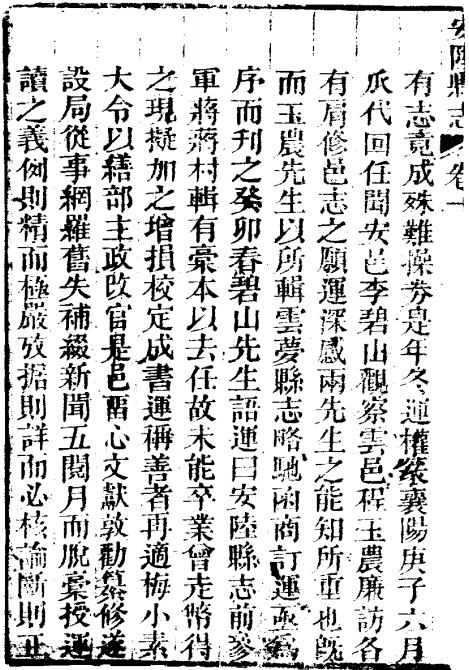 安陸縣志　卷一
有志竟成殊難操券是年冬運權篆襄陽庚子六月
瓜代回任聞安邑李碧山觀察雲邑程玉農廉訪各
有肩修邑志之願運深感兩先生之能知所重也旣
而玉農先生以所輯雲夢縣志略馳函商訂運亟爲
序而刊之癸卯春碧山先生語運曰安陸縣志前叅
軍蔣蔣村輯有稾本以去任故未能卒業曾走幣得
之現擬加之增損校定成書運稱善者再適梅小素
大令以繕部主政改官是邑畱心文獻敦勸纂修遂
設局從事網羅舊失補綴新聞五閱月而脫稾授運
讀之義例則精而極嚴攷据則詳而必核論斷則正